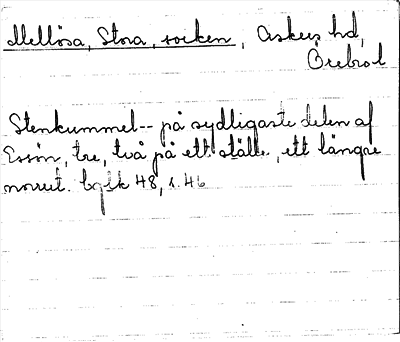 Mellösa, Stora, socken, Askers hd,
Örebro l
Stenkummel-- på sydligaste delen af
Essön, tre, två på ett ställe, ett längre
norrut. 48, s. 46